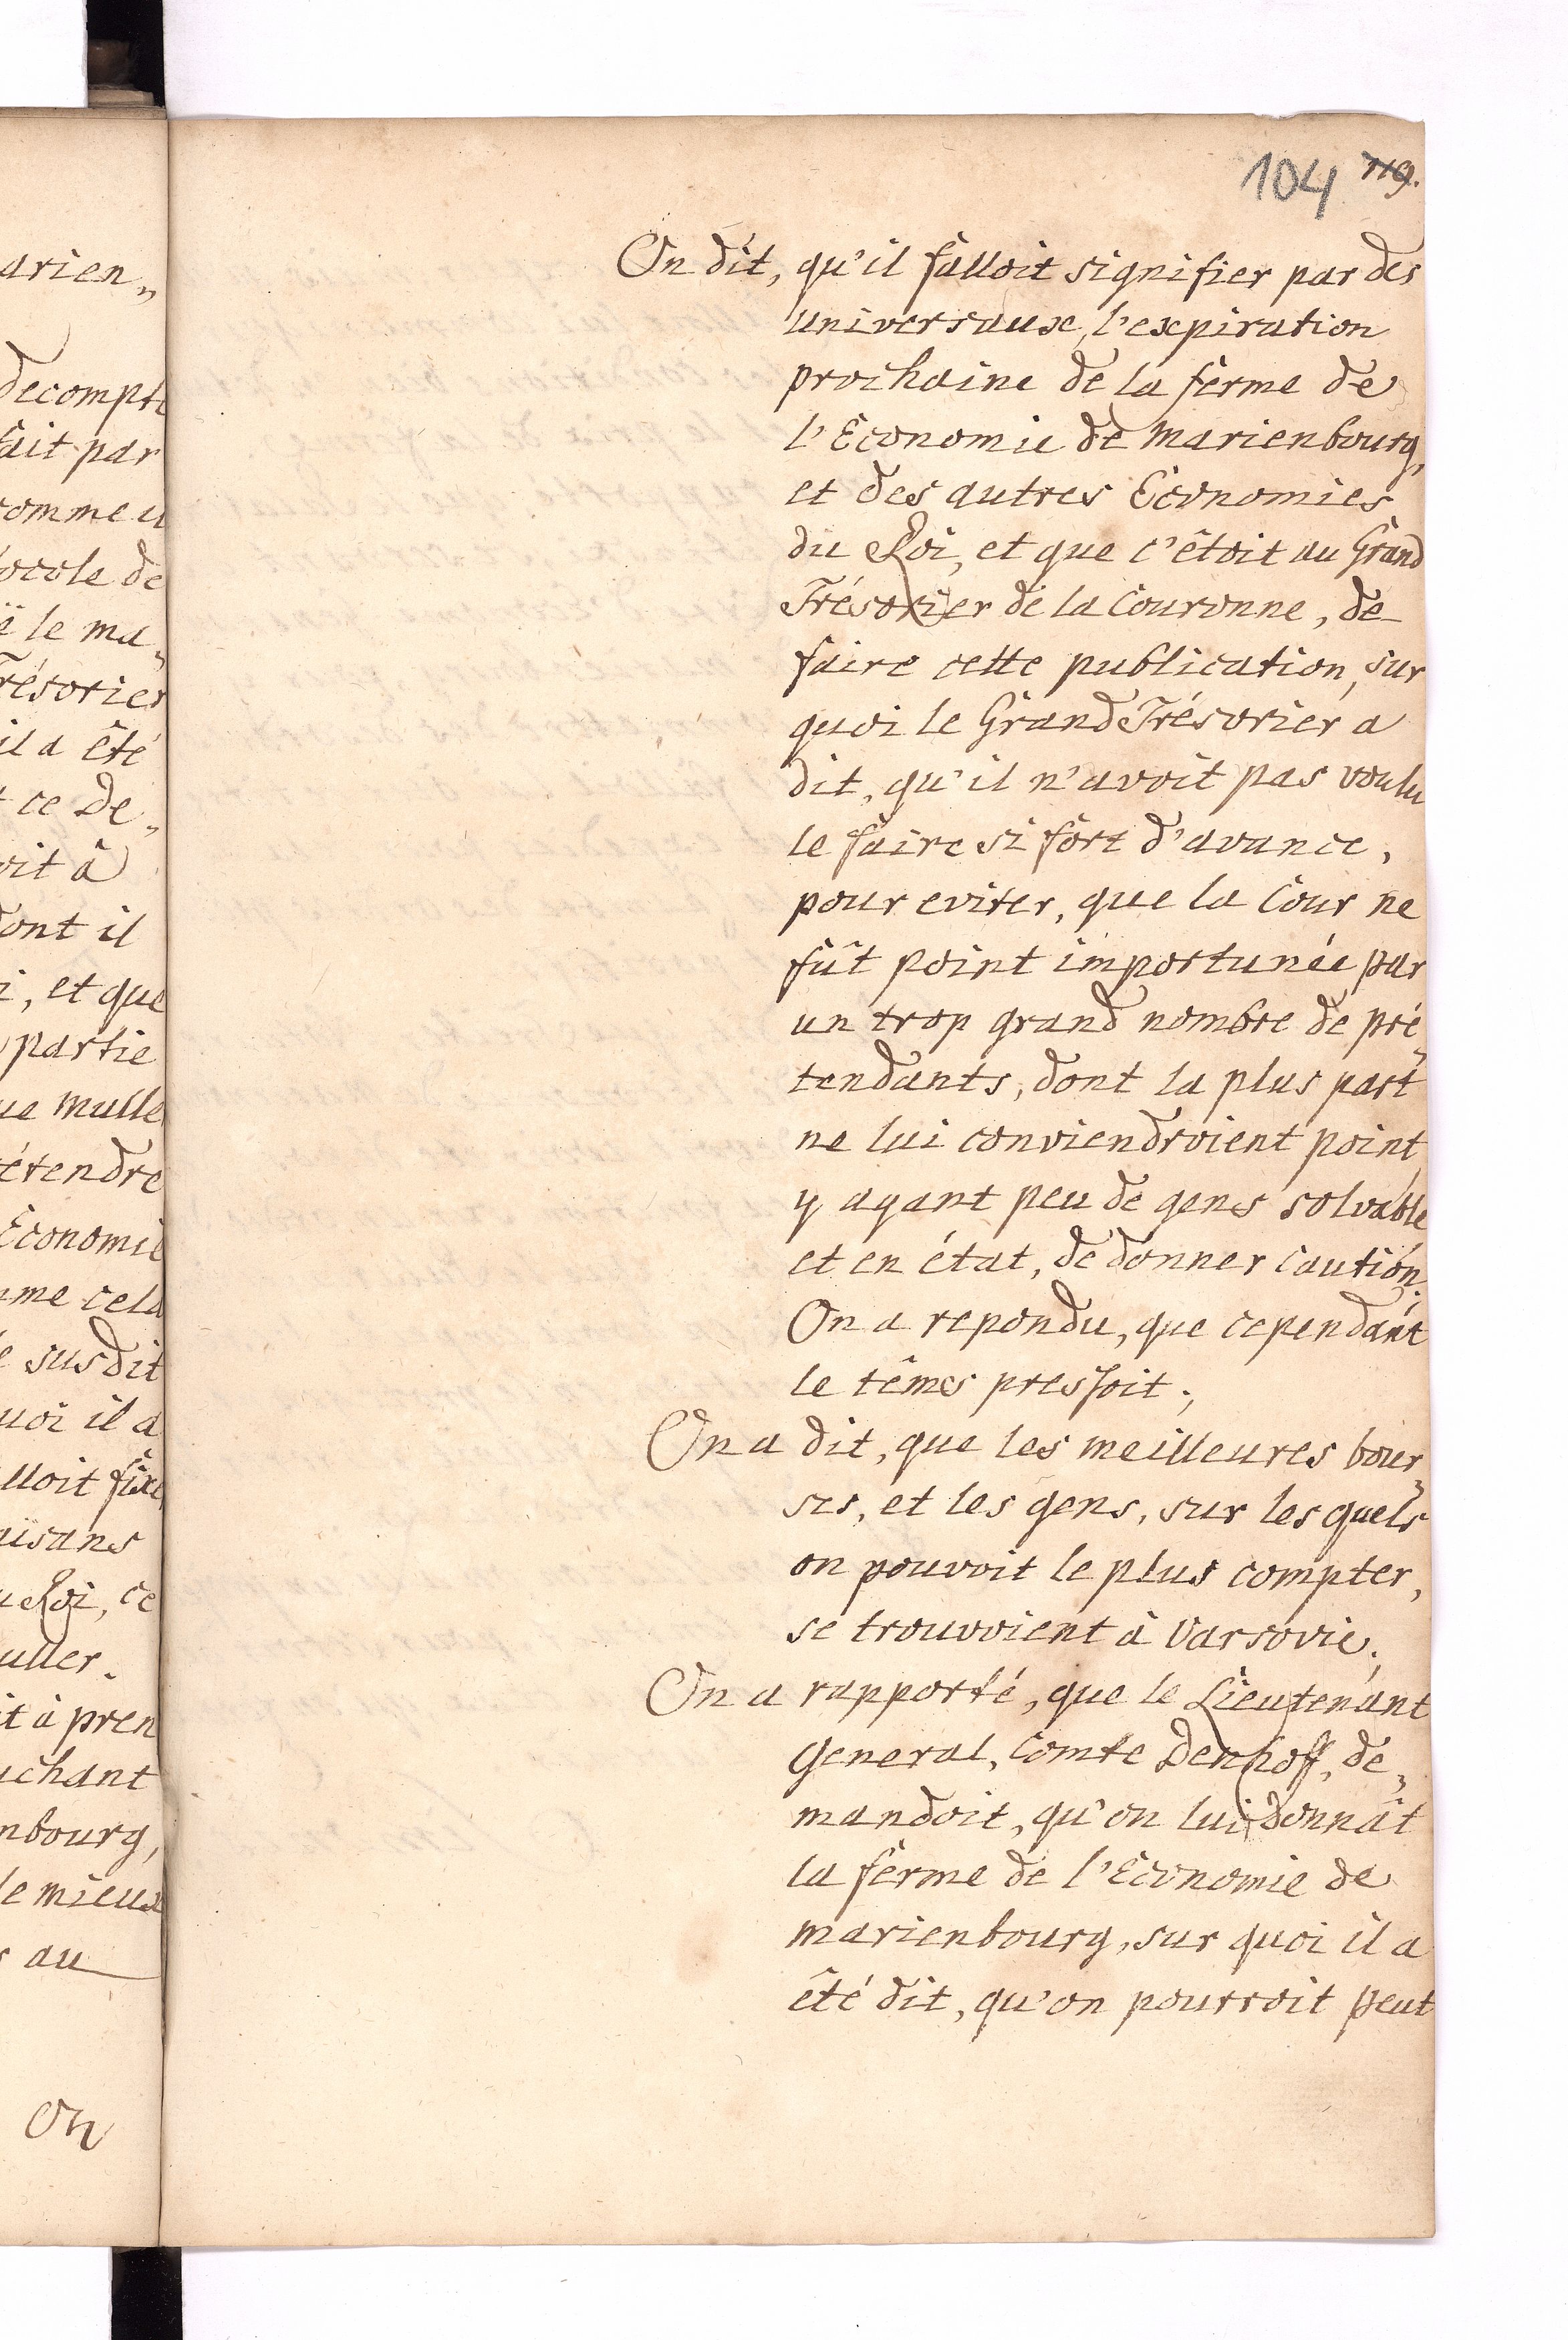 arien„
decompte
fait par
comme u
ocole de
ë le ma„
résorier
il a êté
t ce De„
oit à
dont il
i, et que
partie
ue Mulle
étendre
Economie
me cela
é susdit
uoi il a
lloit fixe
aïsans
u Roi, ce
uller.
it à pren
uchant
nbourg,
le mieux
s au
On
104 119.
On dit, qu'il falloit signifier par des
universaux, l'expiration
prochaine de la ferme de
l'Economie de Marienbourg,
et des autres Economies
du Roi, et que c'êtoit au Grand
Trésorier de la Couronne, de
faire cette publication, sur
quoi le Grand Trésorier a
dit, qu'il n'avoit pas voulu
le faire si fort d'avance,
pour eviter, que la Cour ne
fût point importunée par
un trop grand nombre de pré„
tendants, dont la plus part
ne lui conviendroient point,
y ayant peu de gens solvable
et en état, de donner caution.
On a repondu, que cependant
le têms pressoit;
On a dit, que les meilleures bour„
ses, et les gens, sur les quels
on pouvoit le plus compter,
se trouvoient à Varsovie;
On a rapporté, que le Lieutenant
General, Comte Denhoff, de„
mandoit, qu'on lui donnât
la ferme de l'Economie de
Marienbourg, sur quoi il a
êté dit, qu'on pourroit peut